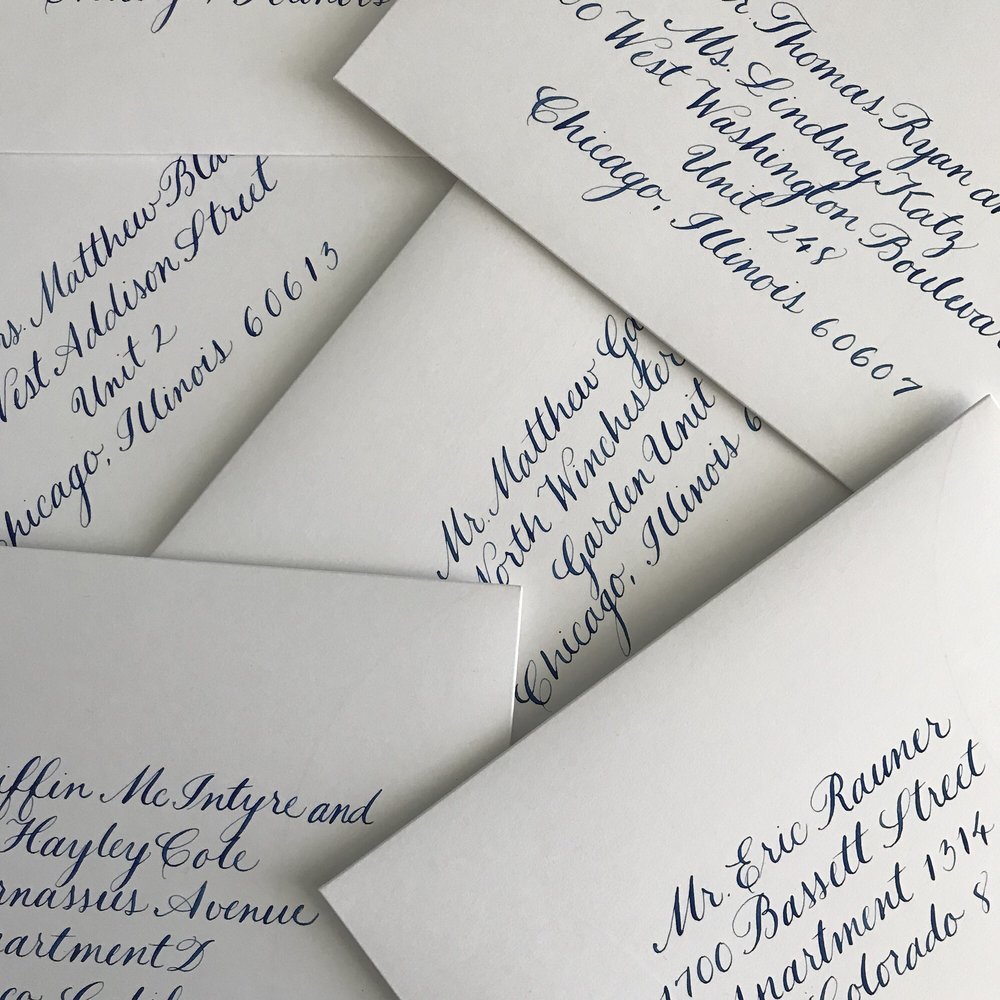 Illinois
Thomas Ryan
Ms. Lindsay Katz
West Washington
Unit 248
Chicago, Illinois 60607
Matthew
West Addison Street
Unit 2
Chicago, Illinois 60613
Mr. Matthew
North Winchester
Garden Unit
Chicago, Illinois 6
McIntyre and
Hayley Cole
Avenue
D
Mr. Eric Rauner
1700 Bassett Street
1314
Colorado 8